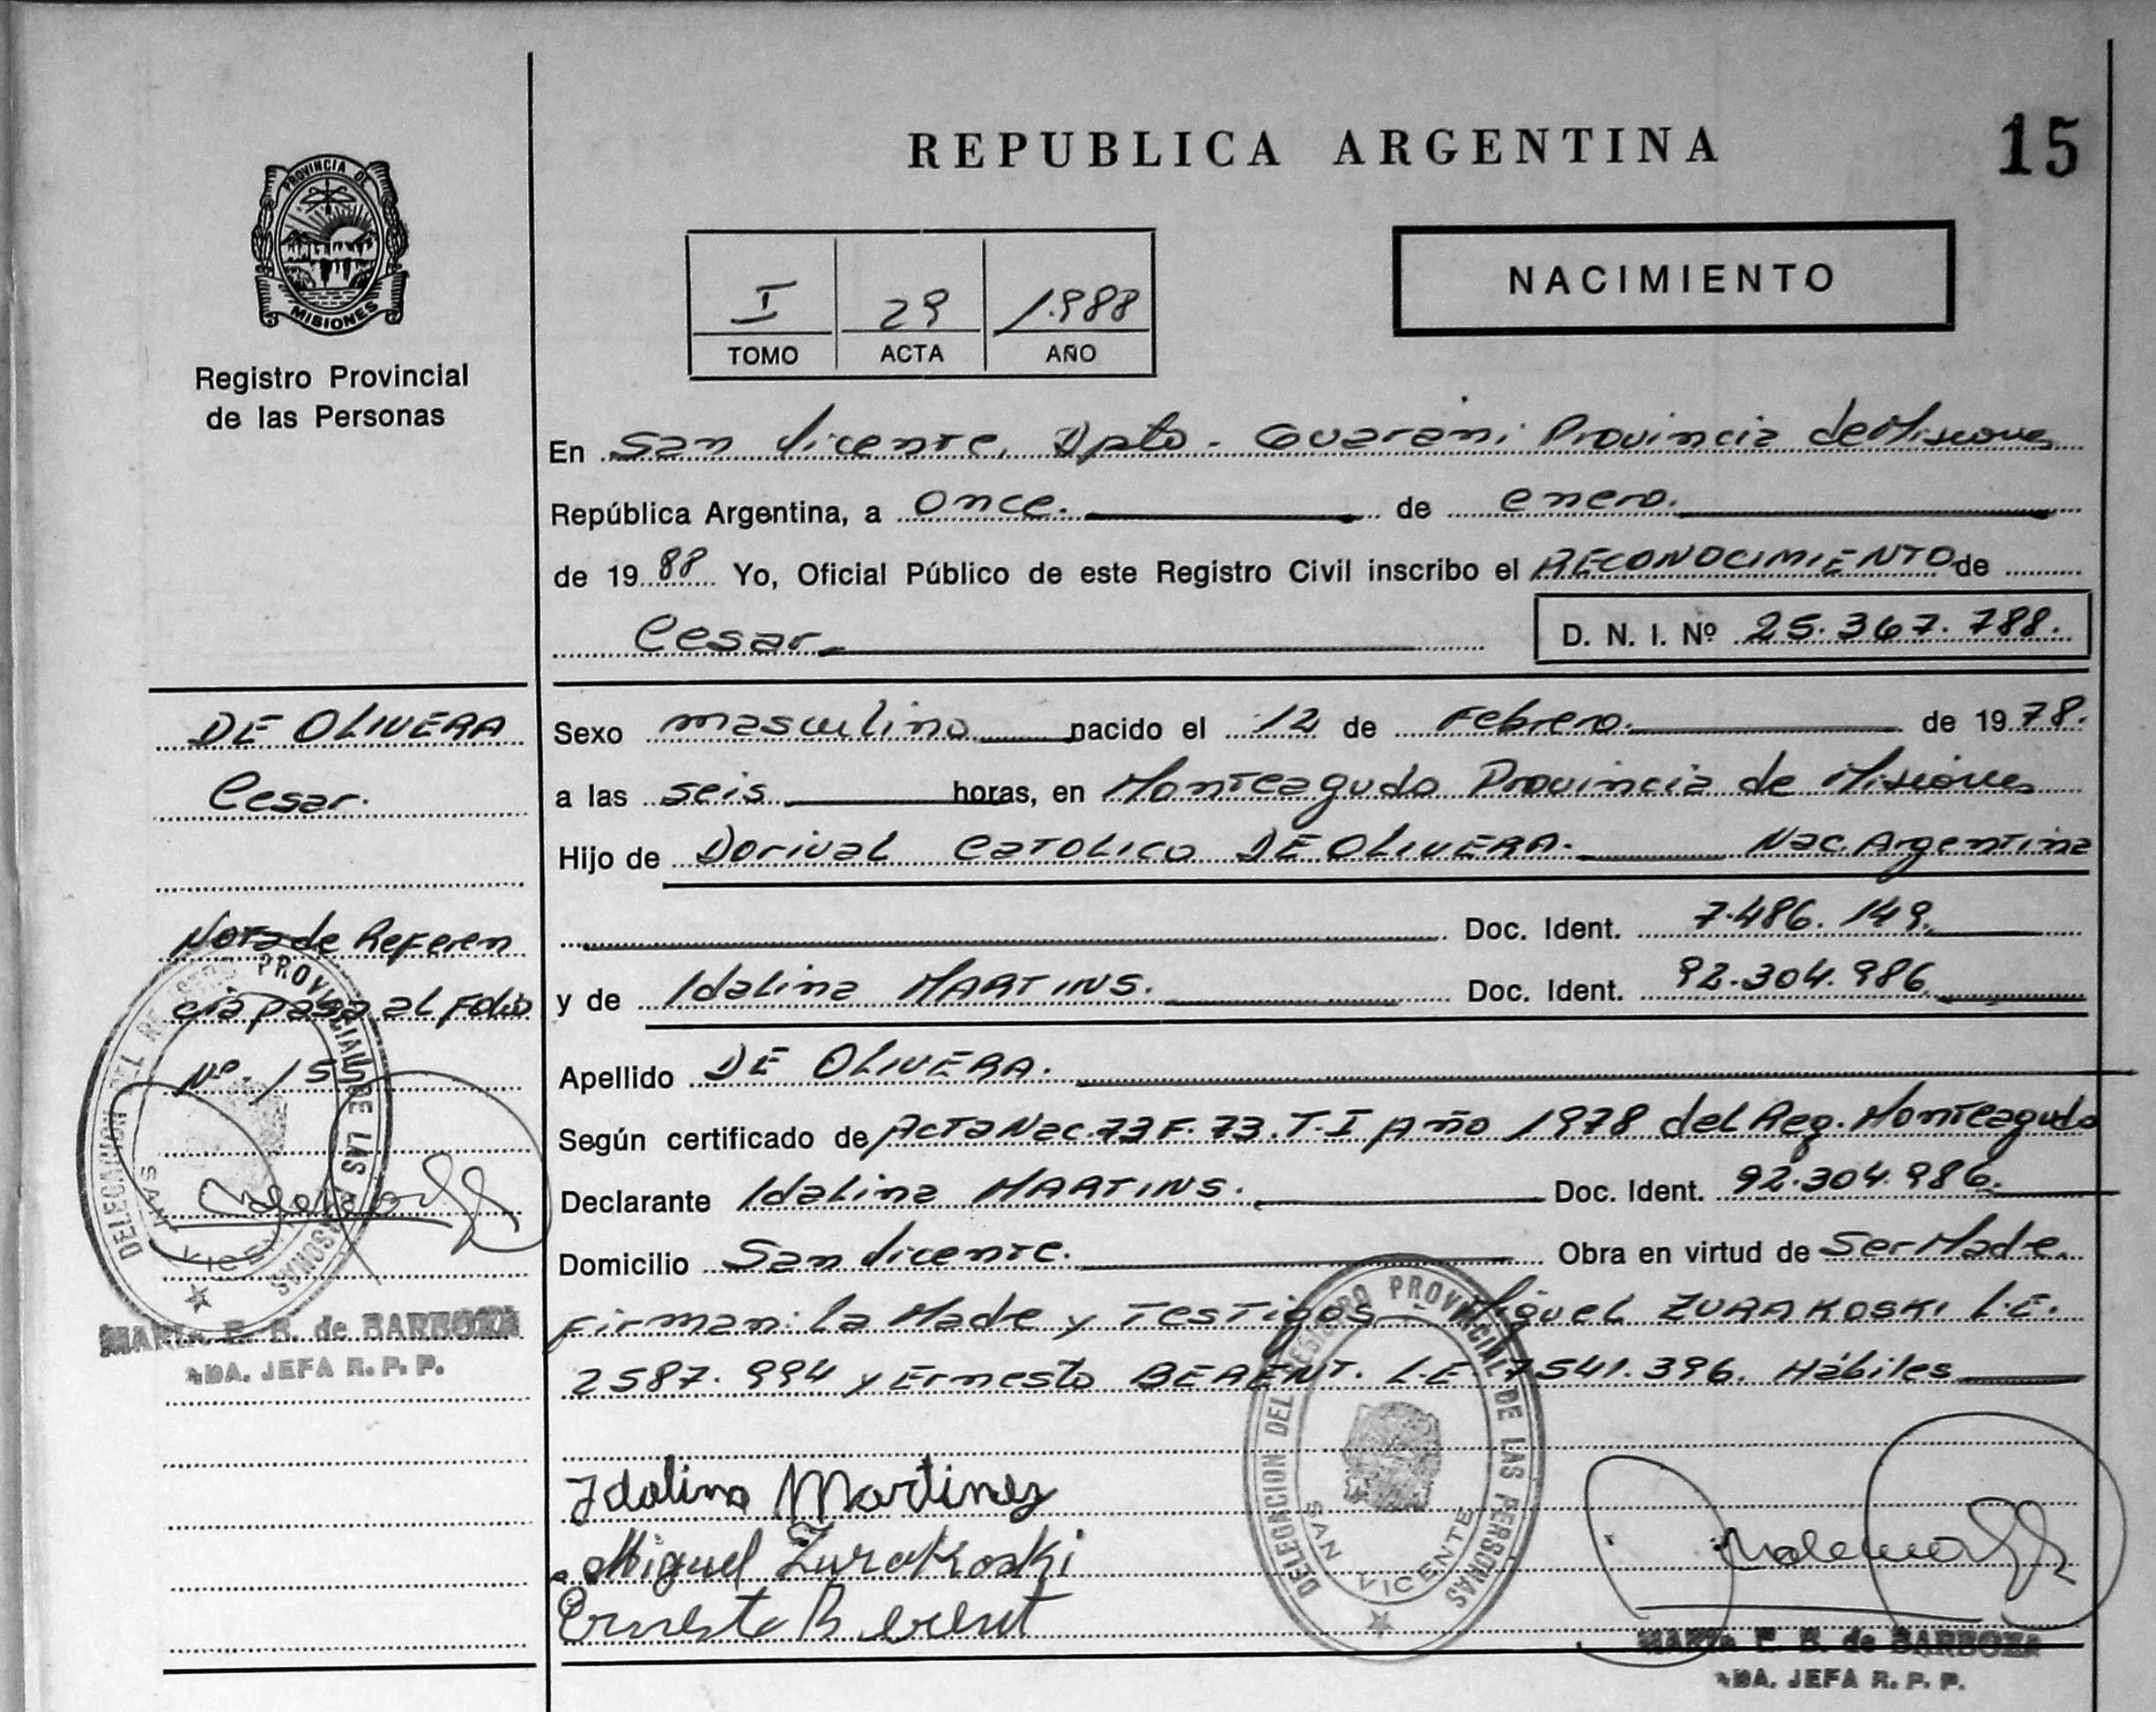 REPUBLICA ARGENTINA
15
PROVINCIA DE
MISIONES
Registro Provincial
de las Personas
I 29 1.988
TOMO ACTA AÑO
NACIMIENTO
En San Vicente, Dpto. Guarani Provincia de Misiones
República Argentina, a once. de enero.
de 19 88 Yo, Oficial Público de este Registro Civil inscribo el RECONOCIMIENTO de
Cesar D. N. I. Nº 25.367.788.
DE OLIVERA
Cesar.
Nota de Referen
cia pasa al Folio
Nº. 155
DELEGACION DEL REGISTRO PROVINCIAL DE LAS PERSONAS
SAN VICENTE
MARIA E. B. de BARBOZA
DA. JEFA R. P. P.
Sexo masculino nacido el 12 de Febrero. de 19 78.
a las seis horas, en Monteagudo Provincia de Misiones
Hijo de Dorival CATOLICO DE OLIVERA. Nac. Argentina
Doc. Ident. 7.486.149.
y de Idalina MARTINS. Doc. Ident. 92.304.986
Apellido DE OLIVERA.
Según certificado de Acta Nac. 73 F. 73. T. I Año 1978 del Reg. Monteagudo
Declarante Idalina MARTINS. Doc. Ident. 92.304.986.
Domicilio San Vicente. Obra en virtud de Ser Made.
Firman: la Made y Testigos Miguel ZURAKOSKI L.E.
2587.994 y Ernesto BERENT. L.E 7541.396. Hábiles
Idalina Martines
Miguel Zurakoski
Ernesto Berent
DELEGACION DEL REGISTRO PROVINCIAL DE LAS PERSONAS
SAN VICENTE
MARIA E. B. de BARBOZA
DA. JEFA R. P. P.